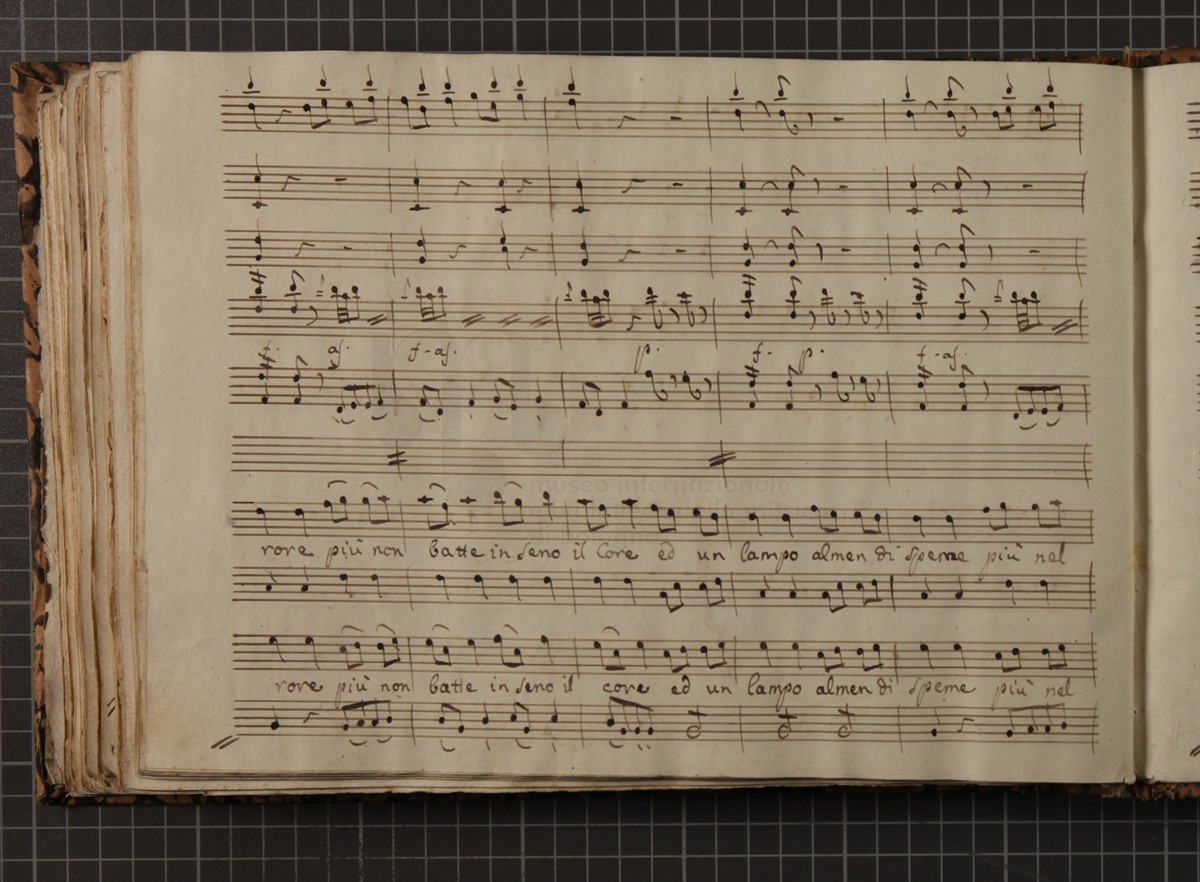 f. as. f-as. p. f. p. f-as.
museo internazionale
rore più non batte in seno il Core ed un lampo almen di speme più nel
rore più non batte in seno il core ed un lampo almen di speme più nel